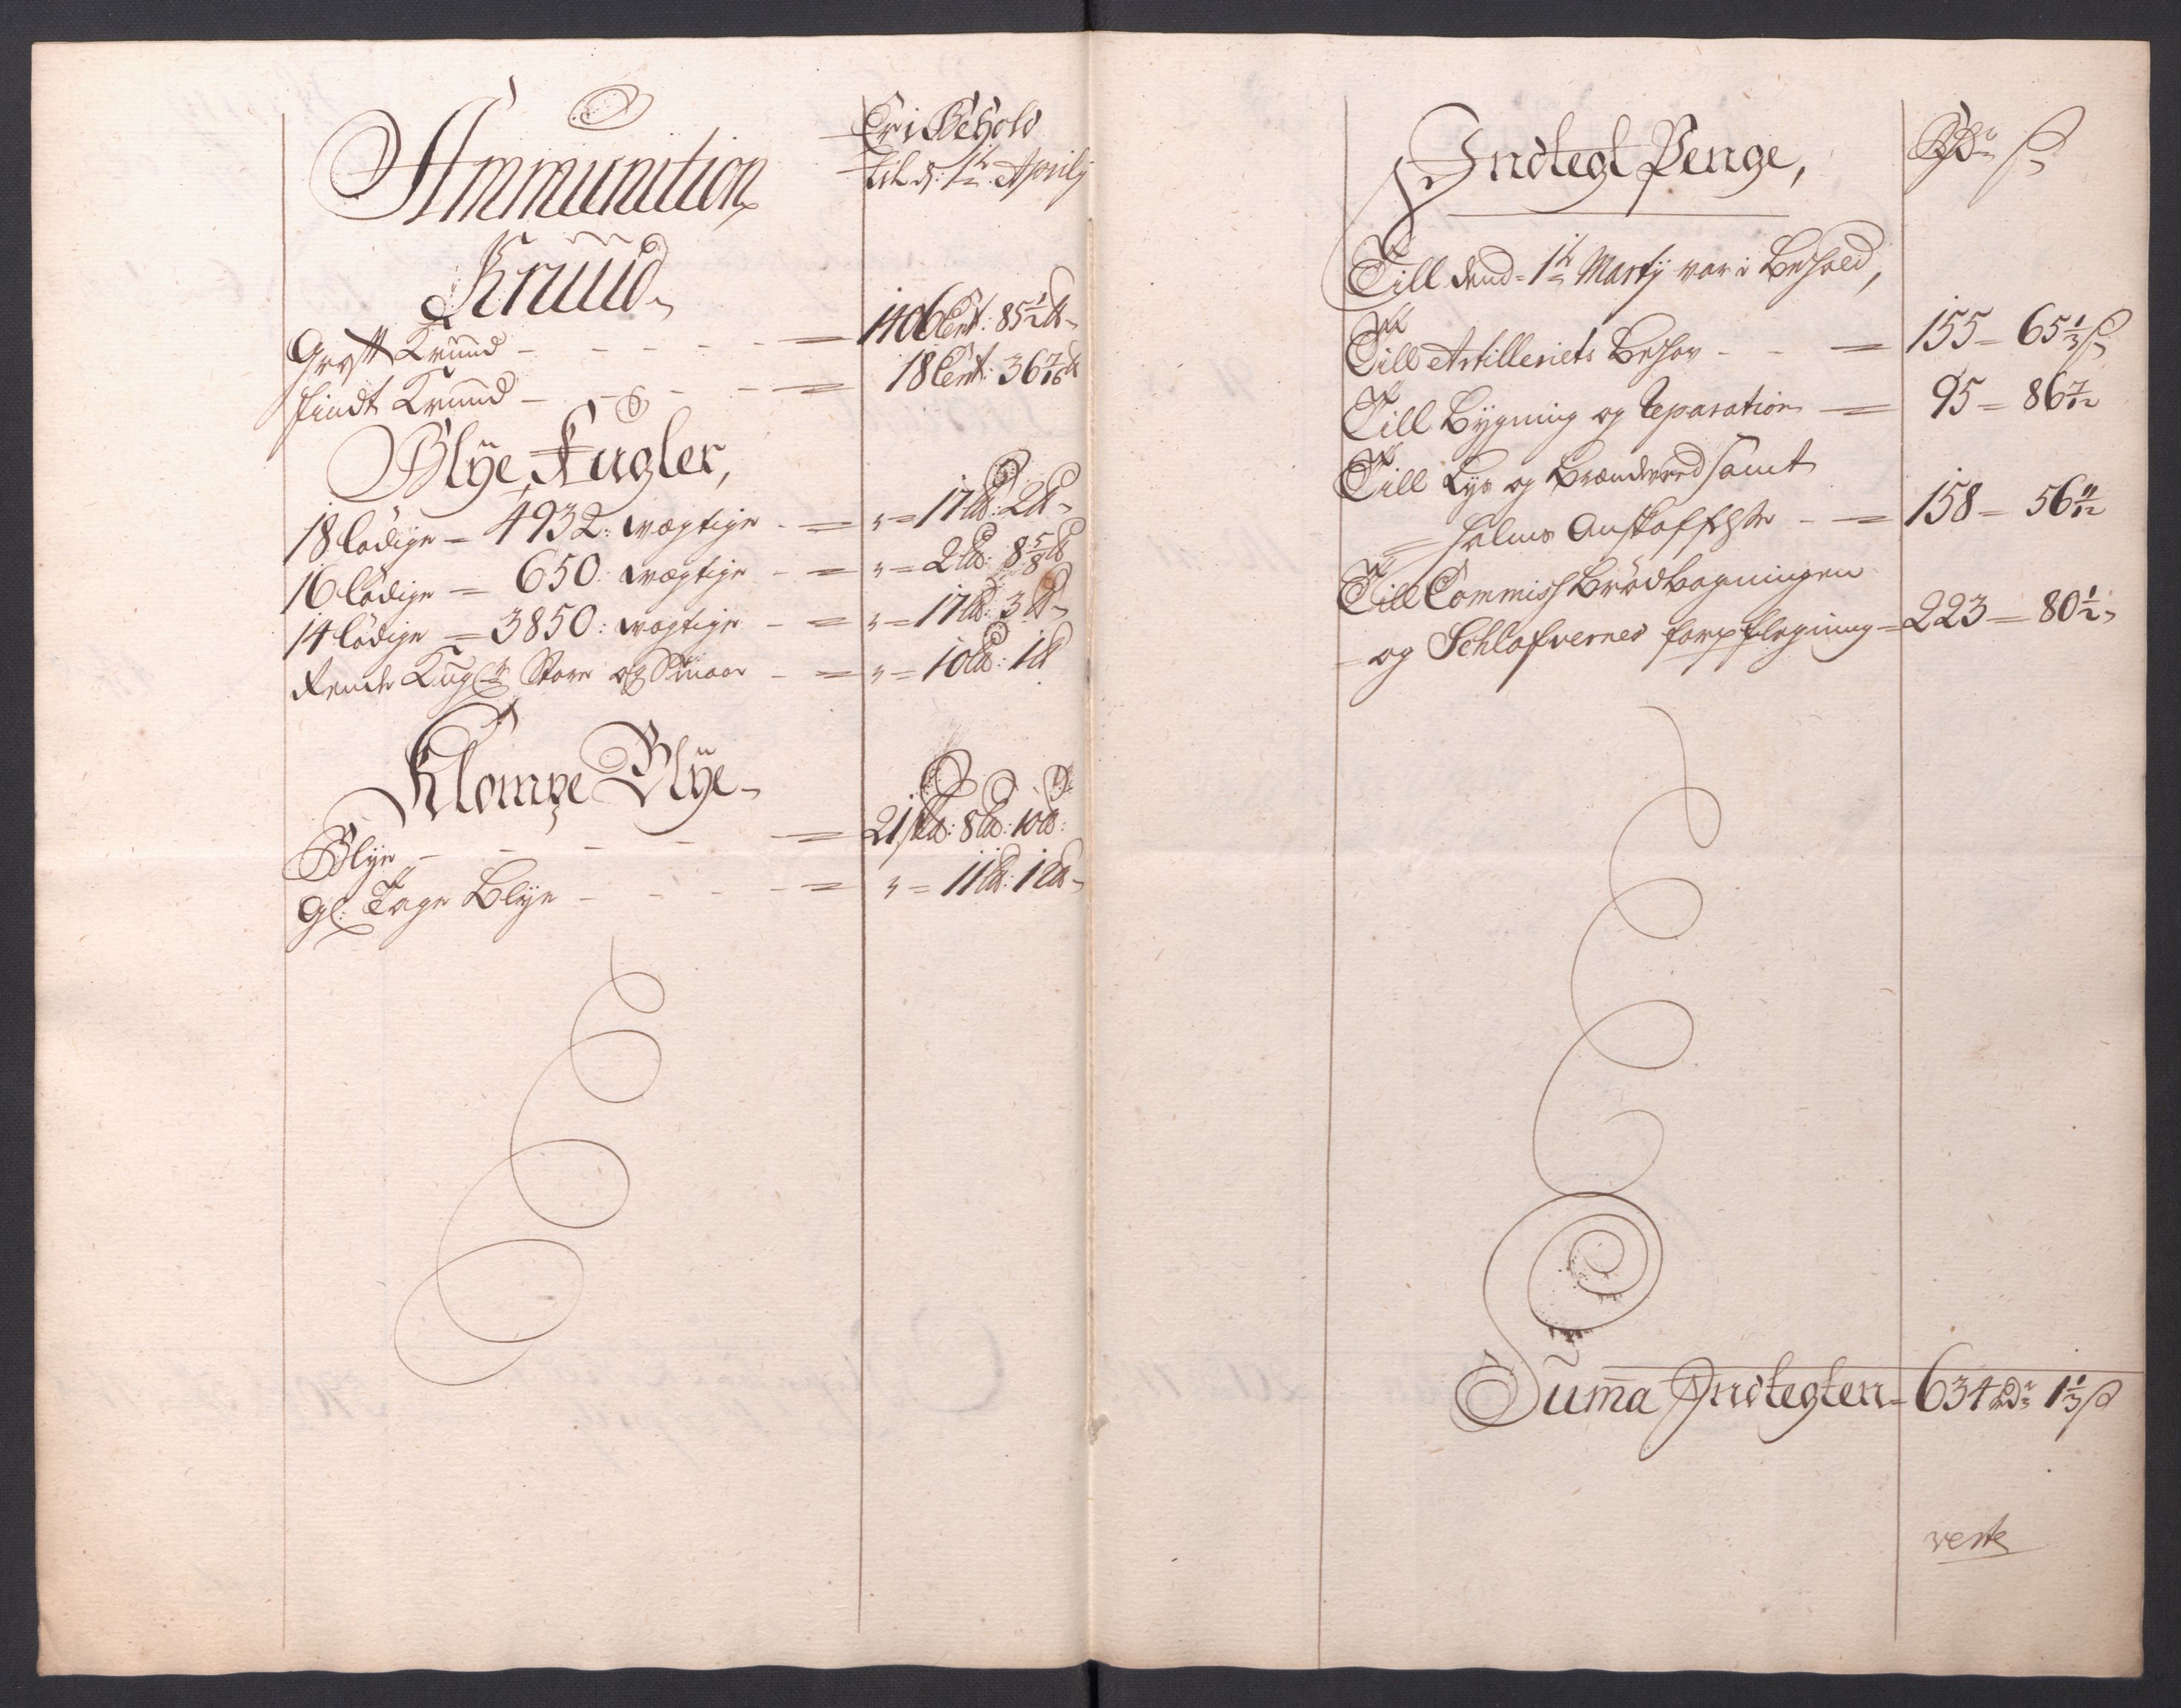 Ammunition
Er i Behold
til d: 1te Aprilij
Kruud
Groft Kruud - - - - - = 1406 Cent: 85 1/2 ℔
fiindt Kruud - - - - = 18 Cent: 36 7/16 ℔
Blÿe Kugler,
18 lödige = 4932: wægtige - = " = 17 L℔: 2 ℔
16 lödige = 650: wægtige - = " = 2 L℔: 8 5/8 ℔
14 lödige = 3850: wægtige - = " = 17 L℔: 3 ℔
Rende Kugler Store og Smaae - = " = 10 L℔: 1 ℔
Klompe Blÿe
Blÿe - - - - = 21 sk℔: 8 L℔: 10 ℔:
Gl: Tage Blÿe - - - - = " = 11 L℔: 1 ℔
Indtegt Penge,
Rdr ß
Till dend 1te Martÿ var i Behold,
Till Artilleriets Behov - - = 155 = 65 1/3 ß
Till Bÿgning og Reparation = 95 = 86 7/12
Till Lys og Brændeveed samt
= halms Anskaffelse - = 158 = 56 11/12
Till Commiss Brødbagningen
= og Schlafvernes forpflegning = 223 = 80 1/2
Sum̄a Indtegten = 634 rdr 1 1/3 ß
verte